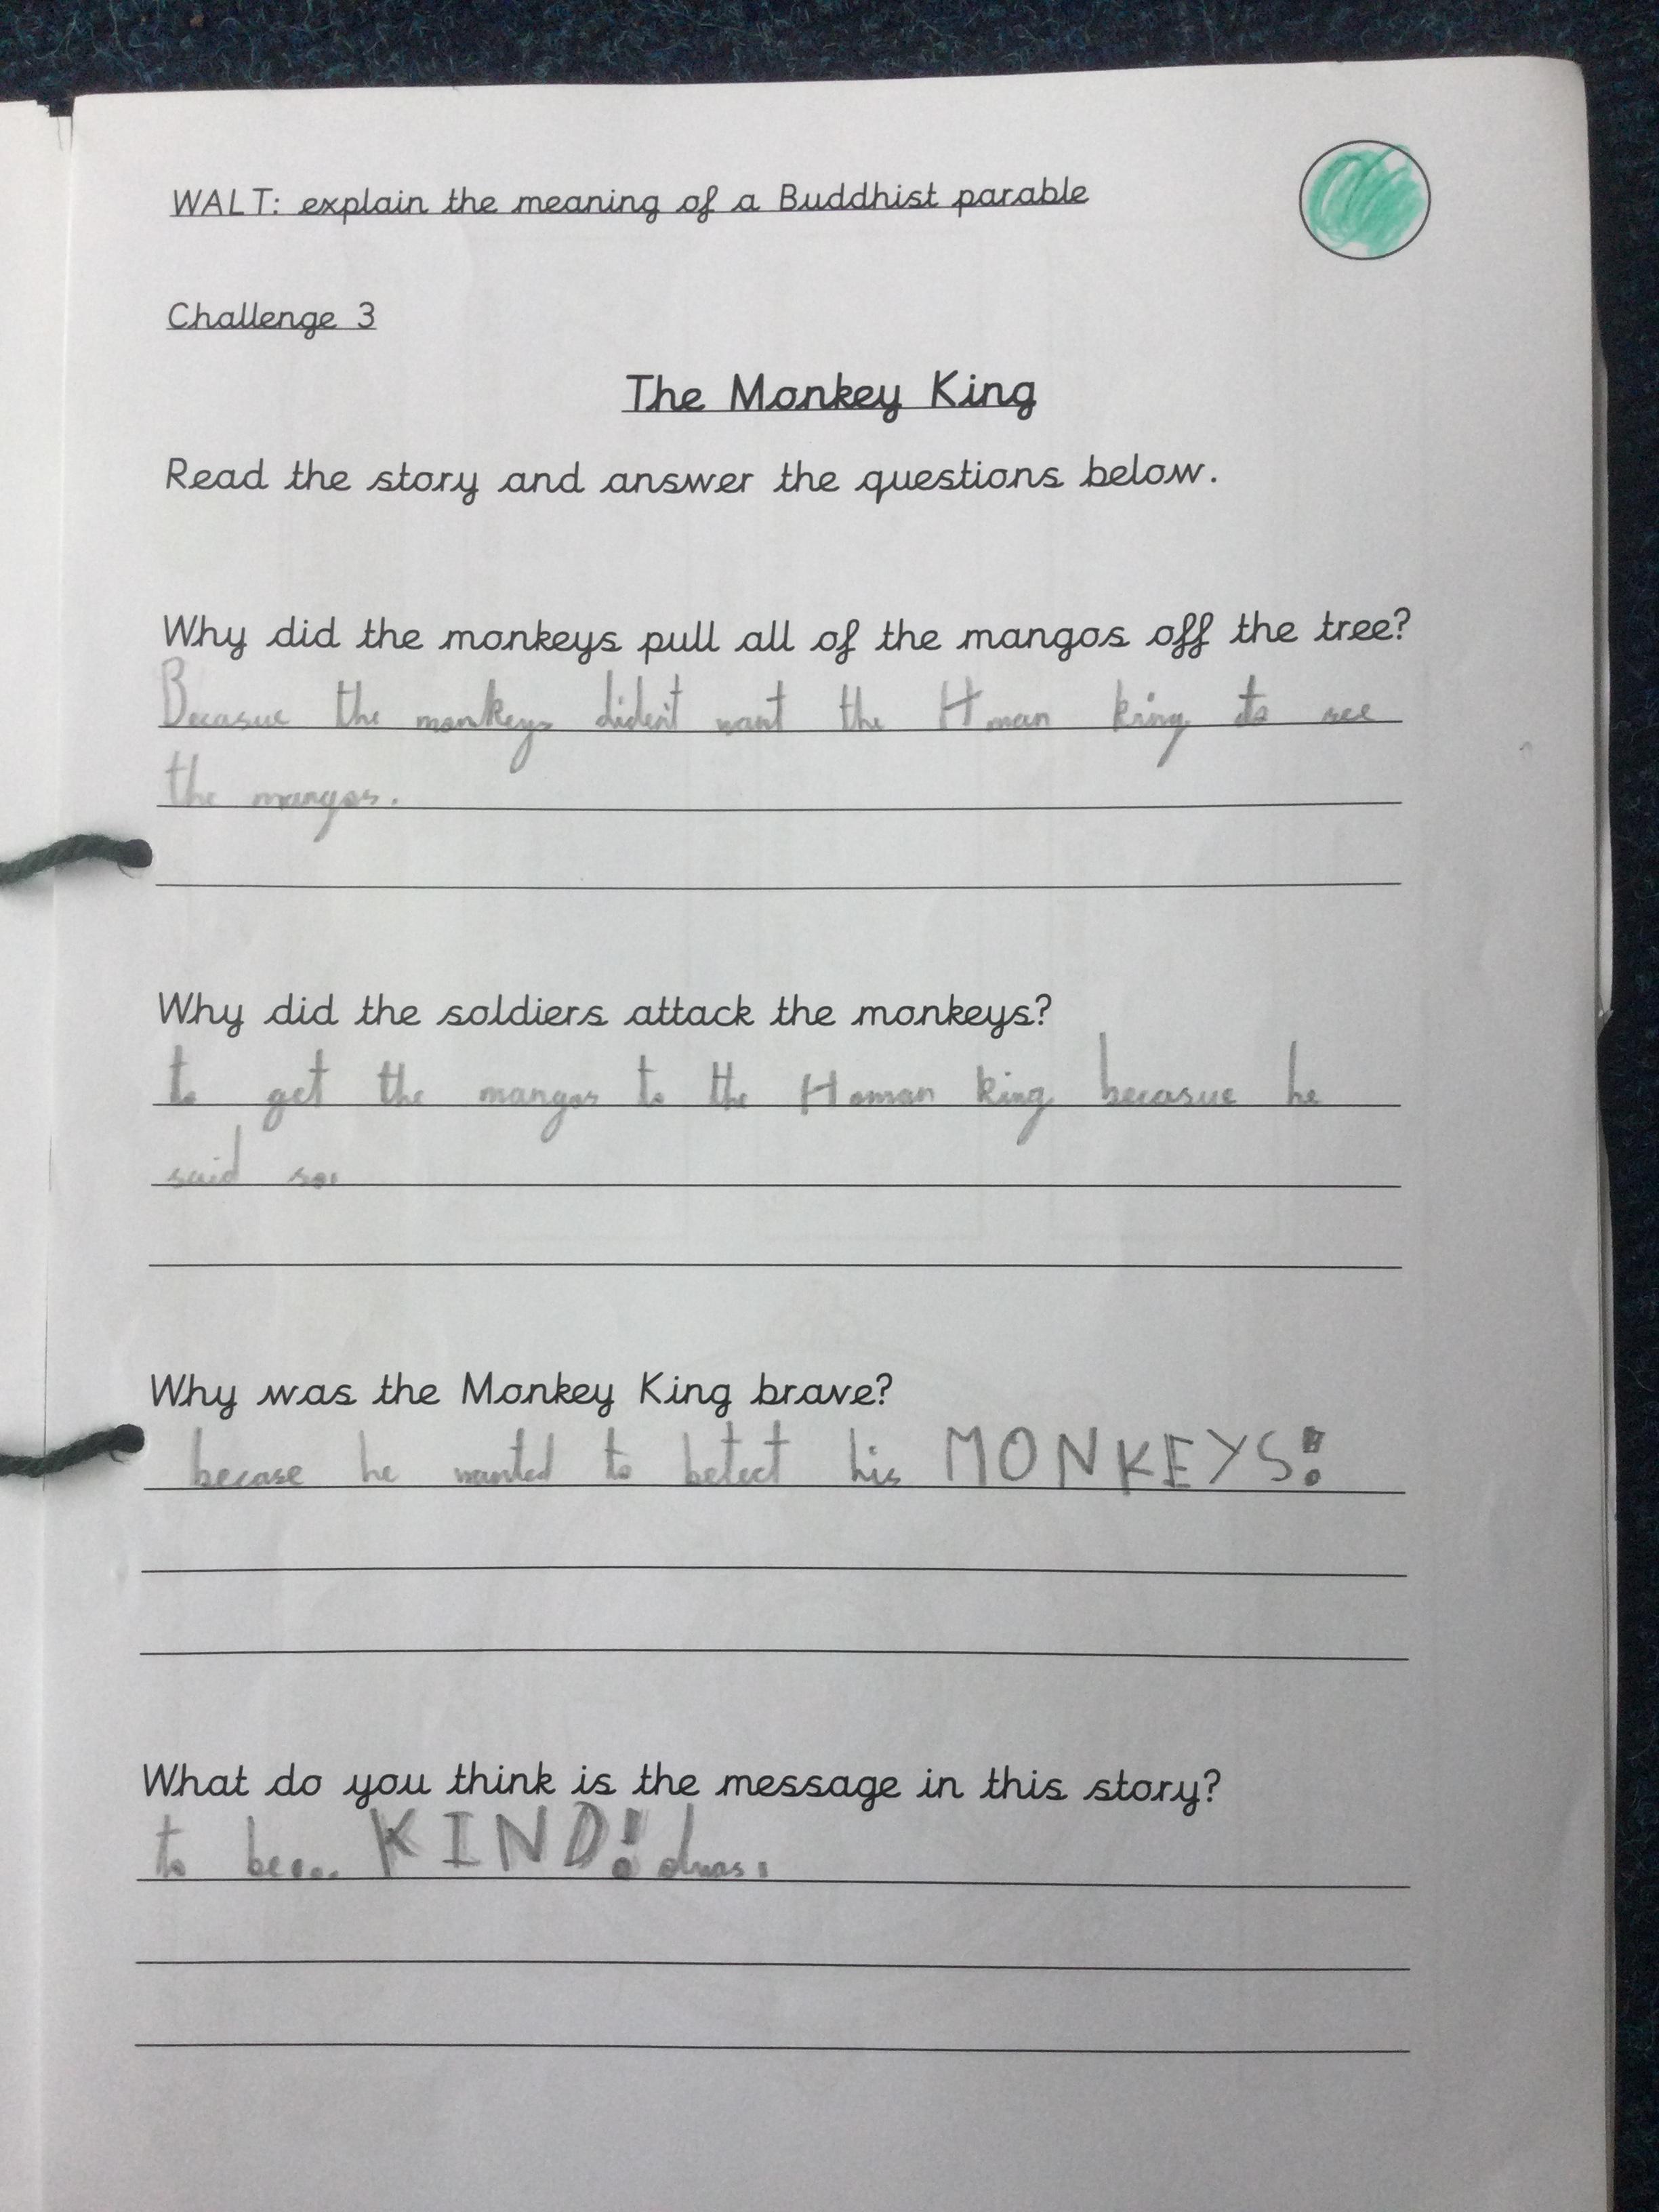 WALT: explain the meaning of a Buddhist parable
Challenge 3
The Monkey King
Read the story and answer the questions below.
Why did the monkeys pull all of the mangos off the tree?
Becasue the monkeys diden't want the Hman king to see
the mangos.
Why did the soldiers attack the monkeys?
to get the mangos to the Homan king becasue he
said so.
Why was the Monkey King brave?
becase he wanted to betect his MONKEYS!
What do you think is the message in this story?
to be... KIND!